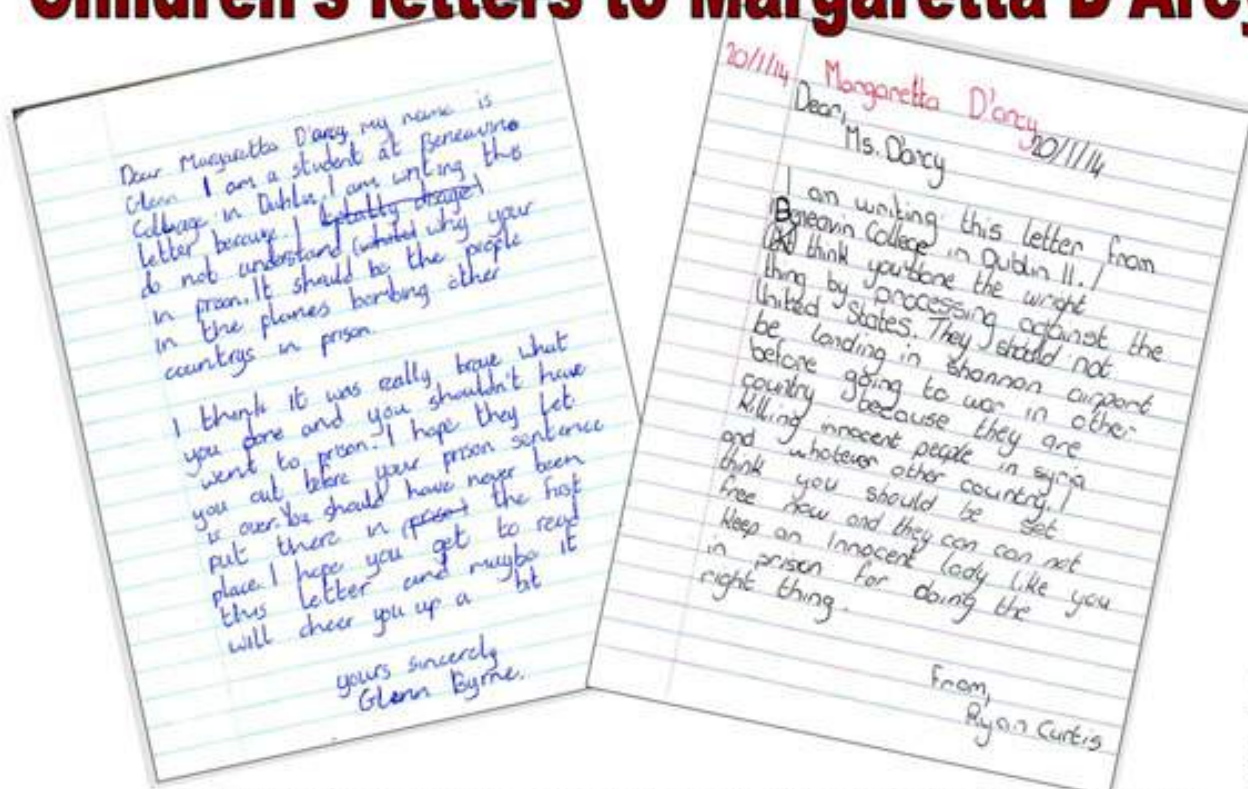 Children's letters to Margaretta D'Arcy
Dear Margaretta D'arcy my name is
Glenn I am a student at Beneavine
Collage in Dublin, I am writing this
letter because I (totally disagel
do not understand (whited why your
in prison. It should be the people
in the planes bombing other
countrys in prison.
I think it was really brave what
you done and you shouldn't have
went to prison. I hope they let
you out before your prison sentence
is over. You should have never been
put there in (prison) the first
place. I hope you get to read
this letter and maybe it
will cheer you up a bit
yours sincerely
Glenn Byrne.
20/1/14 Margaretta D'arcy
Dear, 20/1/14
Ms. Darcy
I am writing this letter from
Beneavin College in Dublin 11. I
think you'done the wright
thing by processing against the
United States. They should not
be landing in shannon airport
before going to war in other
country because they are
killing innocent people in syria
and whatever other country. I
think you should be set
free now and they can can not
keep an innocent lady like you
in prison for doing the
right thing.
From,
Ryan Curtis